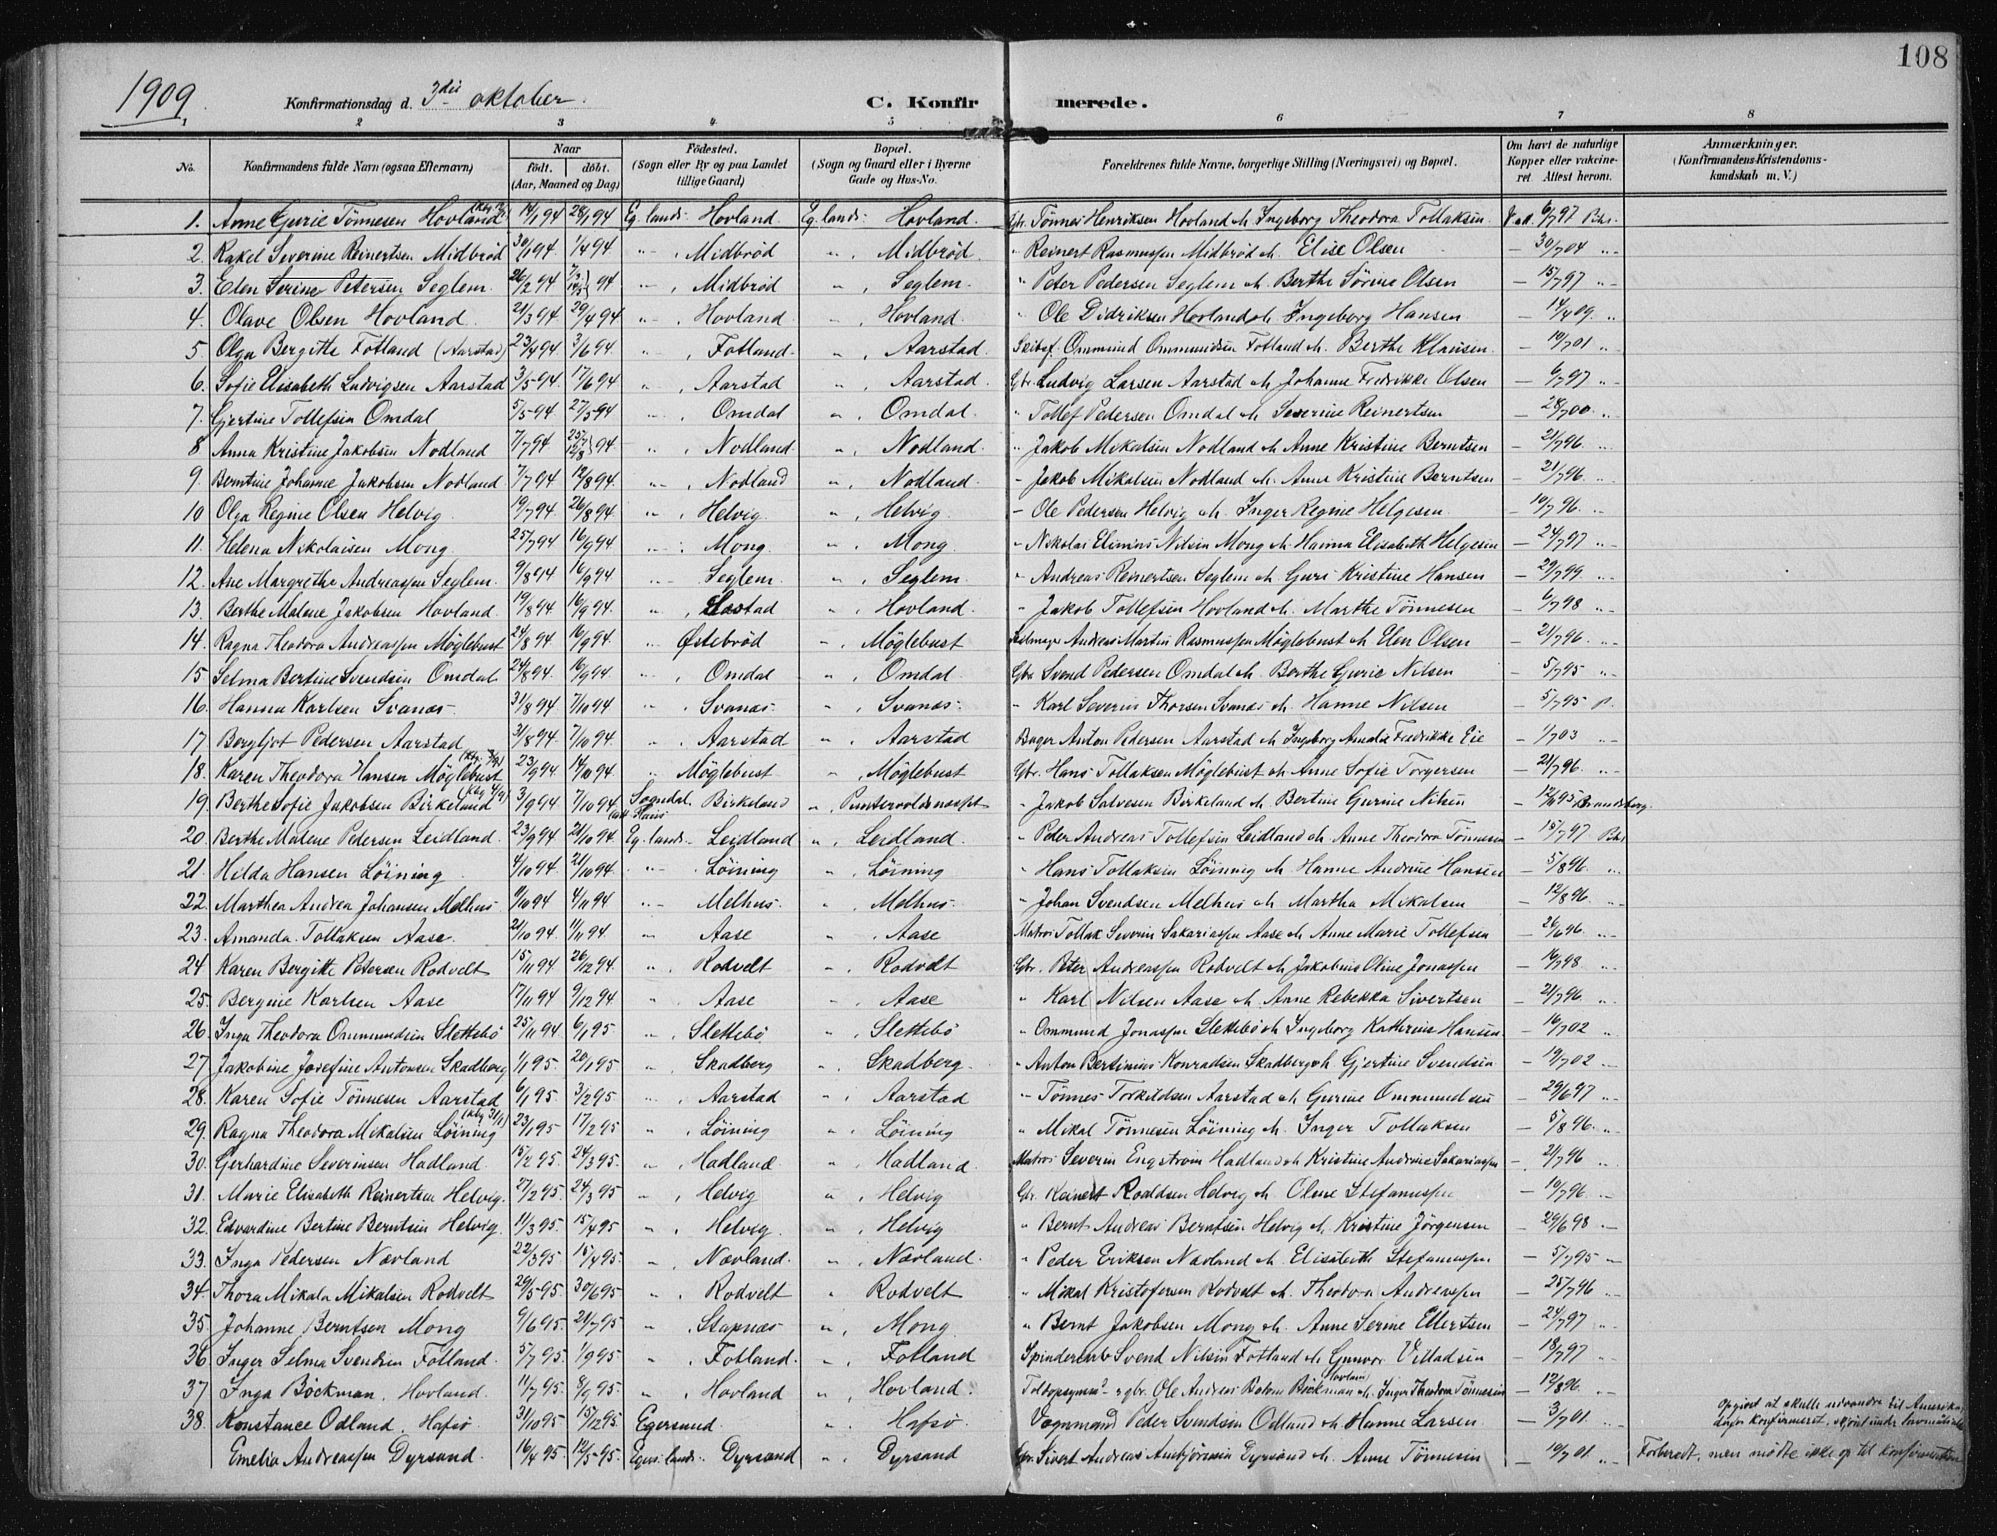 108
1909. Konfirmationsdag d. 3die oktober. C. Konfirmerede.
1 2 3 4 5 6 7 8
No. Konfirmandens fulde Navn (ogsaa Efternavn) Naar født. døbt. (Aar, Maaned og Dag) Fødested. (Sogn eller By og paa Landet tillige Gaard) Bopæl. (Sogn og Gaard eller i Byerne Gade og Hus-No. Forældrenes fulde Navne, borgerlige Stilling (Næringsvei) og Bopæl. Om havt de naturlige Kopper eller vaccineret. Attest herom. Anmærkninger. (Konfirmandens Kristendomskundskab m. V.)
1. Anne Gurie Tönnesen Hovland 14/1 94 28/1 94 Eg. lands. Hovland Eg. lands. Hovland. Gbr. Tönnes Henriksen Hovland & Ingeborg Theodora Tollaksen 6/7 97
2. Rakel Severine Reinertsen Midbrød 30/1 94 1/4 94 " Midbrød " Midbrød. " Reinert Rasmussen Midbrød & Elise Olsen — 30/7 04 "
3. Elen Serine Petersen Seglem. 26/2 94 94 " Midbrød " Seglem. " Peter Pedersen Seglem & Berthe Sörine Olsen — 15/7 97 "
4. Olave Olsen Hovland. 21/3 94 29/4 94 " Hovland " Hovland. " Ole Didriksen Hovland & Ingeborg Hansen — 14/4 09. "
5. Olga Bergitte Fotland (Aarstad) 23/4 94 3/6 94 " Fotland. " Aarstad. Skibsf. Ommund Ommundsen Fotland & Berthe Klausen. — 10/7 01 "
6. Sofie Elisabeth Ludvigsen Aarstad 3/5 94 17/6 94 " Aarstad " Aarstad. Gbr. Ludvig Larsen Aarstad & Johanne Fredrikke Olsen — 6/7 97 "
7. Gjertine Tollefsen Omdal 5/5 94 27/5 94 " Omdal " Omdal. " Tollef Pedersen Omdal & Severine Reinertsen — 28/7 00. "
8 Anna Kristine Jakobsen Nodland 7/7 94 94 " Nodland " Nodland. " Jakob Mikalsen Nodland & Anne Kristine Berntsen — 21/7 96. "
9. Berntine Johanne Jakobsen Nodland 7/7 94 12/8 94 " Nodland " Nodland. " Jakob Mikalsen Nodland & Anne Kristine Berntsen — 21/7 96. "
10 Olga Regine Olsen Helvig. 19/7 94 26/8 94 " Helvig. " Helvig " Ole Pedersen Helvig & Inger Regine Helgesen — 10/7 96. "
11. Helena Nikolaisen Mong. 25/7 94 16/9 94 " Mong. " Mong. " Nikolai Nilsen Mong & Hanna Elisabeth Helgesen — 24/7 97 "
12. Ane Margrethe Andreassen Seglem. 9/8 94 16/9 94 " Seglem. " Seglem. " Andreas Reinertsen Seglem & Guri Kristine Hansen — 29/7 99. "
13. Berthe Malene Jakobsen Hovland 19/8 94 16/9 94. " " Hovland. " Jakob Tollefsen Hovland & Marthe Tönnesen — 6/7 98 "
14. Ragna Theodora Andreassen Möglebust 24/8 94 16/9 94. " Østebrød " Möglebust Andreas Martin Rasmussen Möglebust & Elen Olsen — 21/7 96. "
15 Selma Bertine Svendsen Omdal 24/8 94 16/9 94 " Omdal " Omdal. Gbr. Svend Pedersen Omdal & Berthe Gurie Nilsen — 5/7 95 "
16. Hanna Karlsen Svanæs. 31/8 94 7/10 94 " Svanæs. " Svanæs. " Karl Severin Thorsen Svanæs & Hanne Nilsen — 5/7 95
17 Bergljot Pedersen Aarstad 31/8 94. 7/10 94 " Aarstad " Aarstad Bager Anton Pedersen Aarstad & Ingeborg Amalie Fredrikke Eie — 1/7 03 "
18. Karen Theodora Hansen Möglebust 23/9 94 14/10 94 " Möglebust " Möglebust Gbr. Hans Tollaksen Möglebust & Anne Sofie Torgersen — 21/7 96. "
19. Berthe Sofie Jakobsen Birkeland 3/9 94 7/10 94 Sogndal. Birkeland " Puntervoldsmosset " Jakob Salvesen Birkeland & Bertine Gurine Nilsen — 95
20. Berthe Malene Pedersen Leidland 23/9 94 21/10 94 Eg. lands. Leidland " Leidland " Peder Andreas Tollefsen Leidland & Anne Theodora Tönnesen — 15/7 97
21. Hilda Hansen Löining 4/10 94. 21/10 94 " Löining " Löining " Hans Tollaksen Löining & Hanne Andrine Hansen — 5/8 96. "
22. Marthea Andrea Johansen Melhus. 11/10 94 4/11 94 " Melhus " Melhus. " Johan Svendsen Melhus & Martha Mikalsen — 12/8 96. "
23. Amanda Tollaksen Aase. 21/10 94. 11/11 94 " Aase " Aase Matros Tollak Severin Sakariassen Aase & Anne Marie Tollefsen — 26/6 96. "
24 Karen Bergitte Petersen Rodvelt 15/11 94 26/12 94. " Rodvelt " Rodvelt Gbr. Peter Andreassen Rodvelt & Jakobine Oline Jonassen — 16/7 98. "
25. Bergine Karlsen Aase 17/11 94 9/12 94 " Aase " Aase " Karl Nilsen Aase & Anne Rebekka Sivertsen — 21/7 96. "
26. Inga Theodora Ommundsen Slettebö 25/11 94 6/1 95 " Slettebö " Slettebö " Ommund Jonassen Slettebö & Ingeborg Kathrine Hansen — 16/7 02 "
27 Jakobine Josefine Antonsen Skadberg 1/1 95 20/1 95 " Skadberg " Skadberg. " Anton Bertinius Konradsen Skadberg & Gjertine Svendsen — 19/7 02 "
28. Karen Sofie Tönnesen Aarstad 6/1 95. 3/2 95 " Aarstad " Aarstad " Tönnes Torkildsen Aarstad & Gurine Ommundsen — 29/6 97 "
29. Ragna Theodora Mikalsen Löining 23/1 95 17/2 95 " Löining " Löining " Mikal Tönnesen Löining & Inger Tollaksen — 5/8 96. "
30. Gerhardine Severinsen Hadland 15/2 95. 24/3 95. " Hadland " Hadland. Matros Severin Engström Hadland & Kristine Andrine Sakariassen — 21/7 96 "
31. Marie Elisabeth Reinertsen Helvig. 27/2 95. 24/3 95 " Helvig " Helvig Gbr. Reinert Roaldsen Helvig & Oline Stefanussen — 10/7 96. "
32. Edvardine Bertine Berntsen Helvig. 11/3 95. 15/4 95 " Helvig " Helvig " Bernt Andreas Berntsen Helvig & Kristine Jörgensen — 29/6 98 "
33. Inga Pedersen Nævland 22/3 95. 15/4 95. " Nævland. " Nævland. " Peder Eriksen Nævland & Elisabeth Stefanussen — 5/7 95 "
34. Thora Mikala Mikalsen Rodvelt 29/5 95. 30/6 95 " Rodvelt " Rodvelt " Mikal Kristofersen Rodvelt & Theodora Andreassen — 25/7 96 "
35. Johanne Berntsen Mong 9/6 95. 21/7 95 " Stapnæs " Mong. " Bernt Jakobsen Mong & Anne Serine Ellertsen — 24/7 97 "
36. Inger Selma Svendsen Fotland. 5/7 95. 1/9 95 " Fotland. " Fotland Svend Nilsen Fotland & Gunvor Villadsen — 18/7 97 "
37. Inga Böckman, Hovland. 11/7 95 8/9 95 " Hovland " Hovland. Toldopsynsm. & gbr. Ole Andreas Böckman (Hovland) & Inger Theodora Tönnesen — 12/8 96. "
38. Konstance Odland, Hafsö 31/10 95 15/12 95. Egersund. " Hafsö Vognmand Peder Svendsen Odland & Hanne Larsen — 3/7 01. " opgivet at skulle udvandre til Amerika, derfor konfirmeret, skjönt under lovmæssig
Emelia Andreassen Dyrsand 16/4 95. 12/5 95. Eg. lands. Dyrsand " Dyrsand Gbr. Sivert Andreas Dyrsand & Anne Tönnesen — 10/7 01 " Forberedt, men mödte ikke op til konfirmation